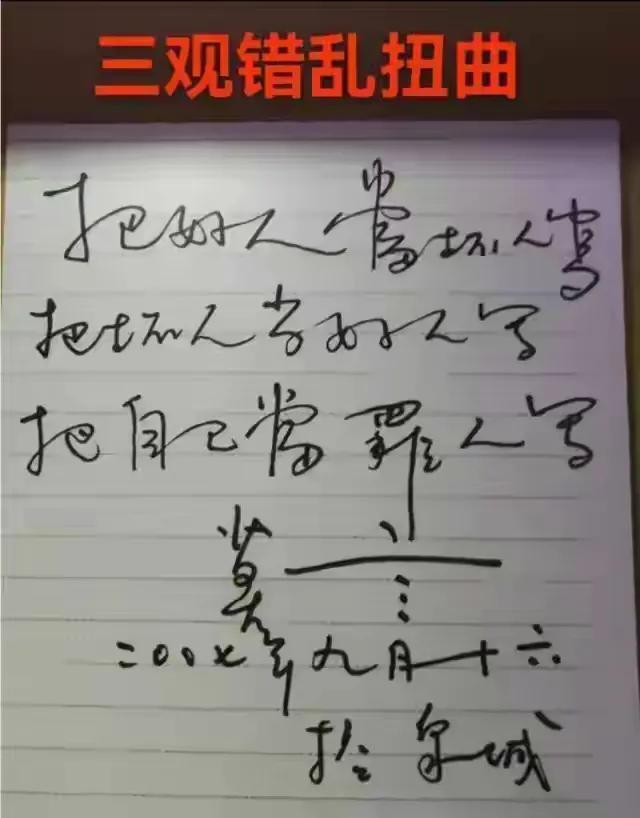 三观错乱扭曲
把好人當坏人寫
把坏人当好人写
把自己當罪人写
莫言
二00七年九月十六
於泉城